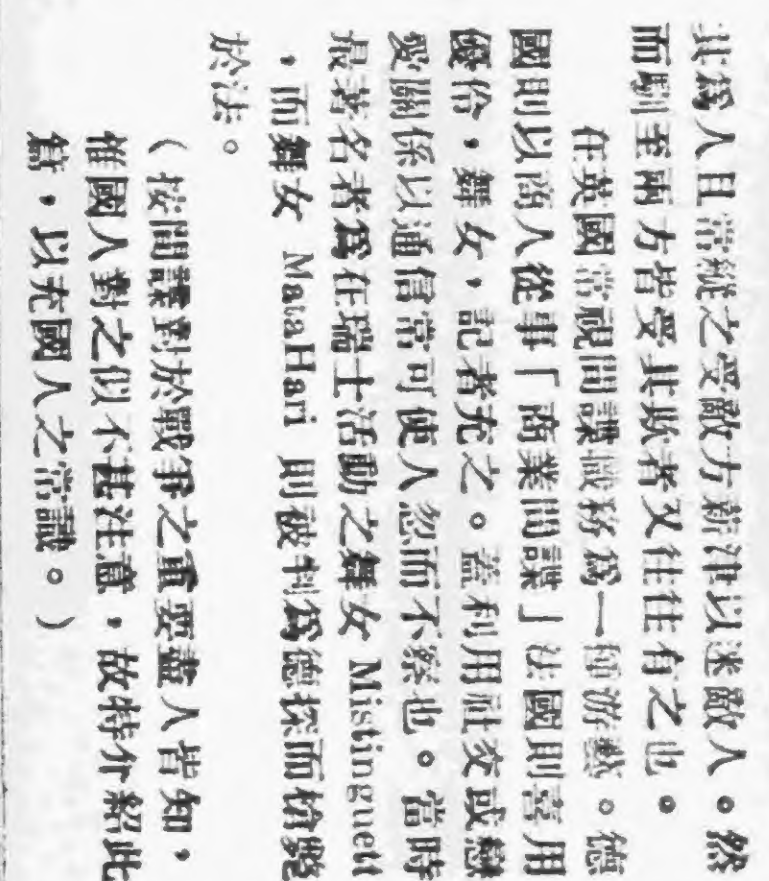 其爲人且常縱之受敵方薪津以迷敵人。然
而馴至兩方皆受其欺者又往往有之也。
在英國常視間諜職務爲一種游戲。德
國則以商人從事「商業間諜」法國則喜用
優伶，舞女，記者充之。蓋利用社交或戀
愛關係以通信常可使人忽而不察也。當時
最著名者爲在瑞士活動之舞女 Mistinguett
，而舞女 MataHari 則被判爲德探而槍斃
於法。
（按間諜對於戰爭之重要盡人皆知，
惟國人對之似不甚注意，故特介紹此
篇，以充國人之常識。）